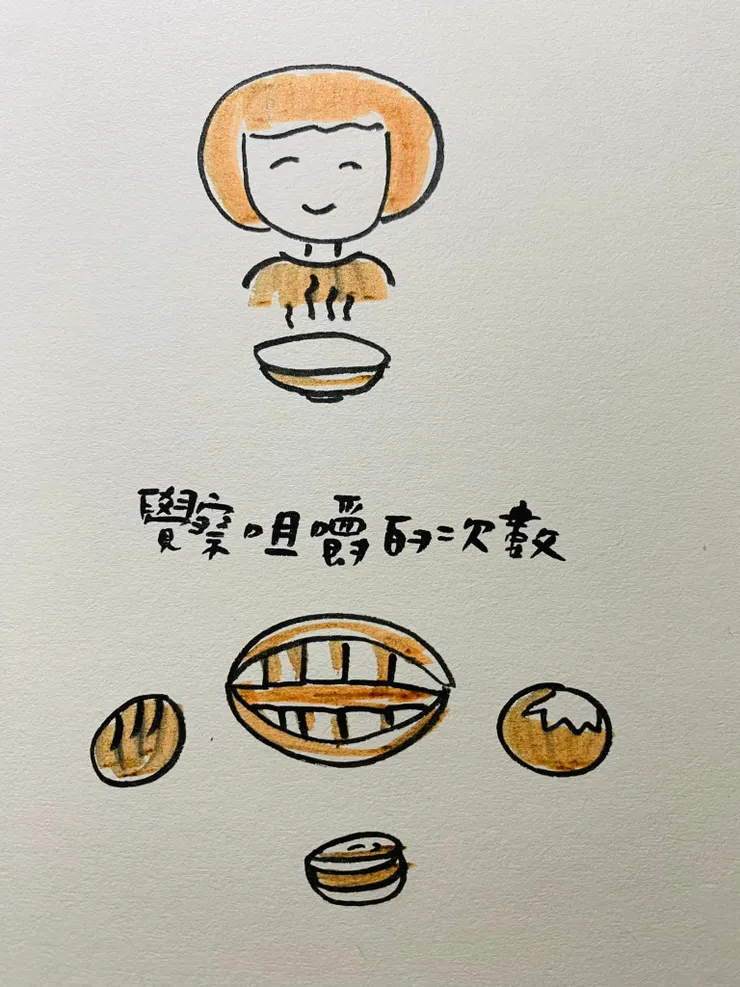 覺察咀嚼的次數